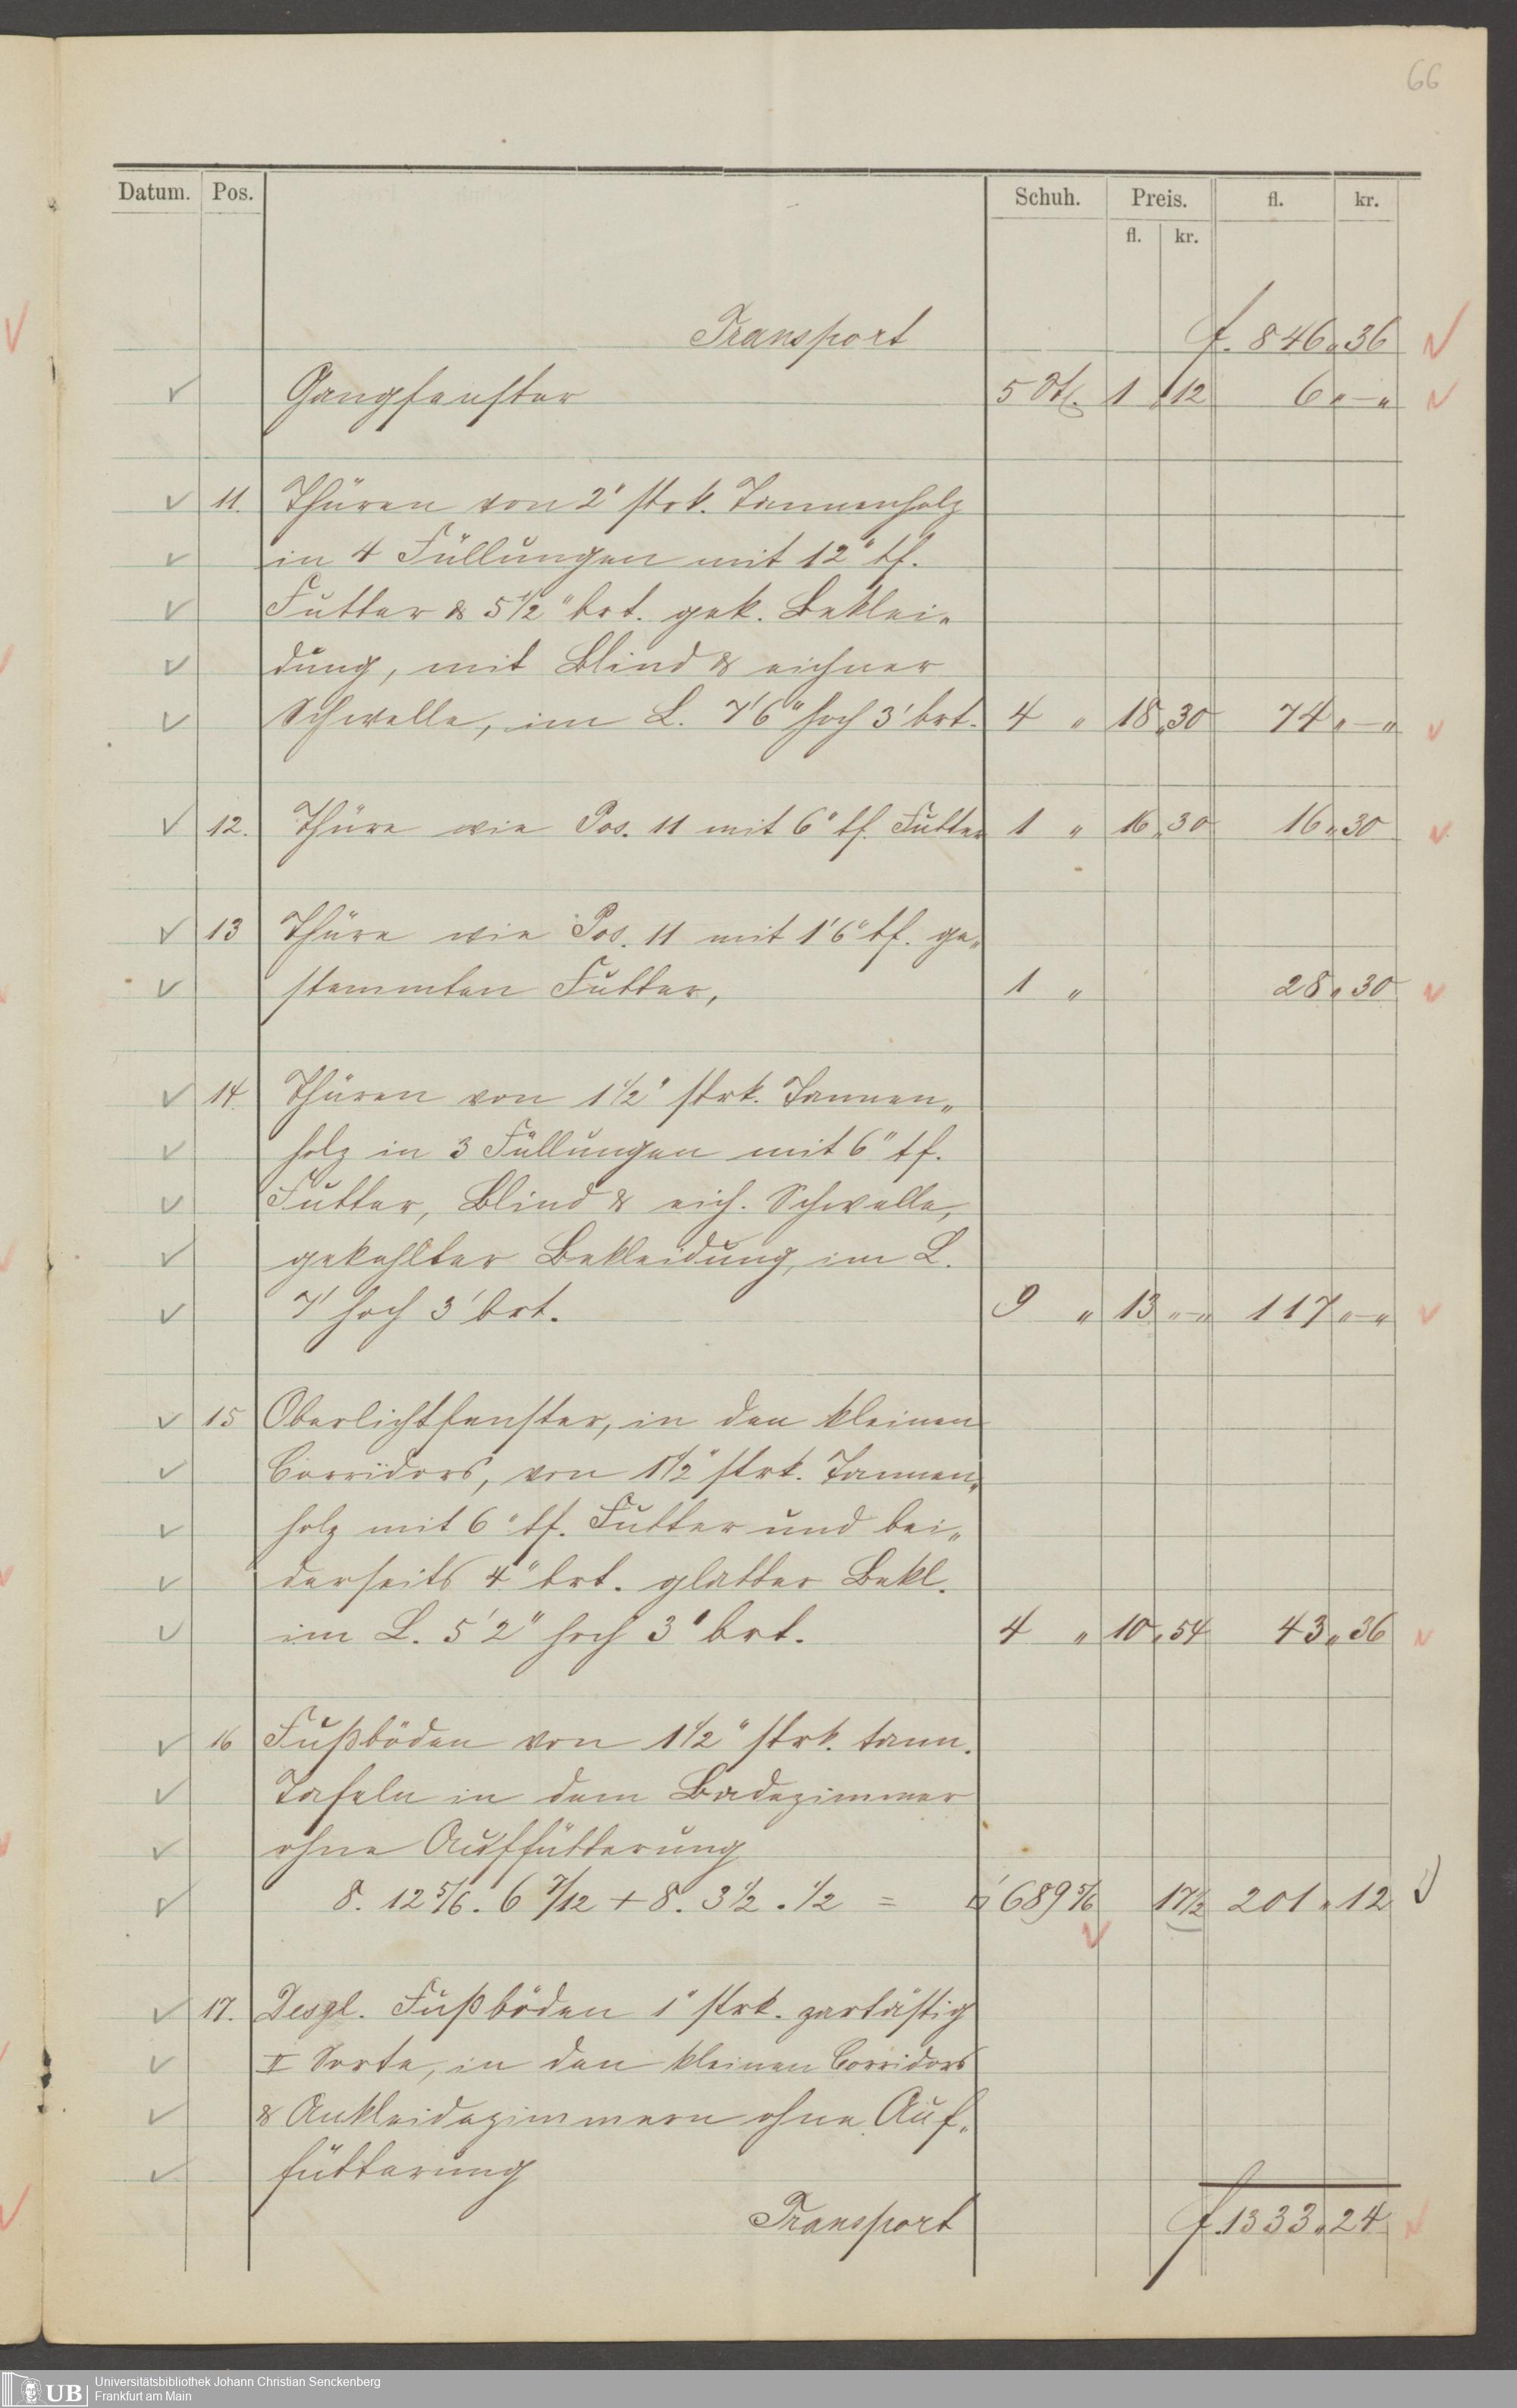 66
Datum. Pos. Schuh. Preis. fl. kr.
fl. kr.
Transport f. 846 „ 36
Gangfenster 5 Stk. 1 „ 12 6 „ — „
11. Thüren von 2" strk. Tannenholz
in 4 Füllungen mit 12" tf.
Futter & 5 1/2" brt. gek. Beklei„
dung, mit Blind & eichner
Schwelle, im L. 7'6" hoch 3' brt. 4 „ 18 „ 30 74 „ — „
12. Thüre wie Pos. 11 mit 6" tf. Futter 1 „ 16 „ 30 16 „ 30
13 Thüre wie Pos. 11 mit 1'6" tf. ge„
stemmten Futter, 1 „ 28 „ 30
14. Thüren von 1 1/2" strk. Tannen„
holz in 3 Füllungen mit 6" tf.
Futter, Blind & eich. Schwelle,
gekehlter Bekleidung, im L.
7' hoch 3' brt. 9 „ 13 „ — „ 117 „ — „
15 Oberlichtfenster, in den kleinen
Corridors, von 1 1/2" strk. Tannen„
holz mit 6" tf. Futter und bei„
derseits 4" brt. glatter Bekl.
im L. 5'2" hoch 3' brt. 4 „ 10 „ 54 43 „ 36
16 Fußböden von 1 1/2" strk. tann.
Tafeln in dem Badezimmer
ohne Auffütterung
8. 12 5/6. 6 7/12 + 8. 3 1/2 . 1/2 = □' 689 5/6 17 1/2 201 „ 12
17. Desgl. Fußböden 1" strk. zartästig
II Sorte, in den kleinen Corridors
& Ankleidezimmern ohne Auf„
fütterung
Transport f. 1333 „ 24
UB Universitätsbibliothek Johann Christian Senckenberg
Frankfurt am Main